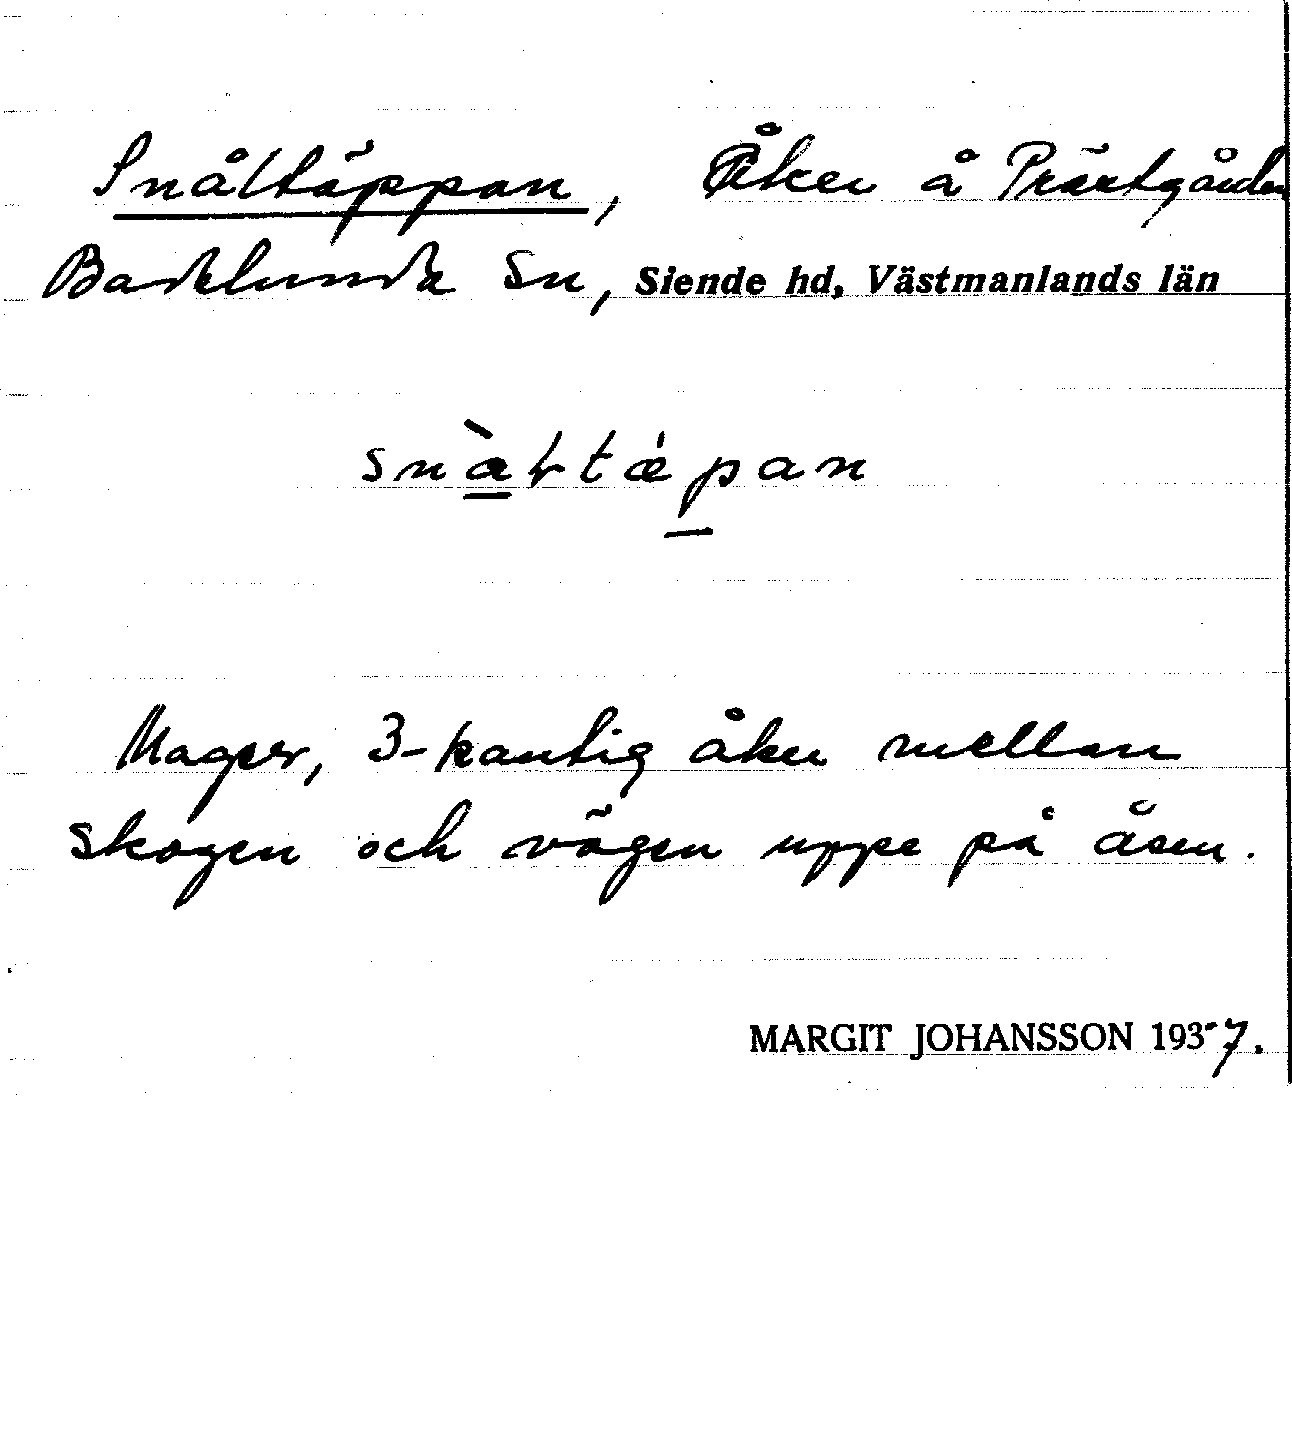 Snåltäppan, Åker å Prästgården
Badelunda Sn, Siende hd, Västmanlands län
snàltǽpan
Mager, 3-kantig åker mellan
skogen och vägen uppe på åsen.
MARGIT JOHANSSON 1937.